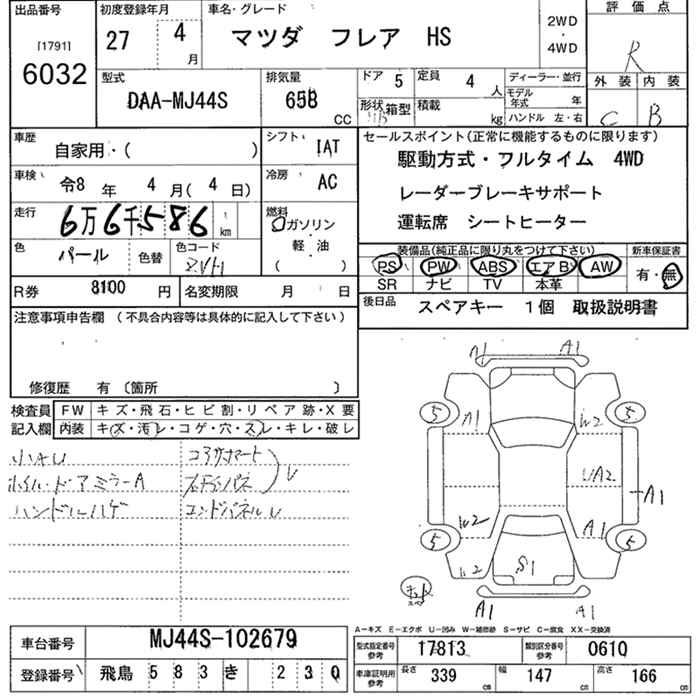 出品番号 初度登録年月 車名・グレード 評価点
[1791] 6032 27 4月 マツダ フレア HS 2WD・4WD R
型式 排気量 ドア 5 定員 4人 ディーラー・並行 外装 内装
DAA-MJ44S 658 CC 形状 箱型 積載 kg モデル年式 年 C B
ハンドル 左・右
車歴 シフト セールスポイント(正常に機能するものに限ります)
自家用・( ) IAT 駆動方式・フルタイム 4WD
車検 令8年 4月(4日) 冷房 AC レーダーブレーキサポート
走行 6万6千586 km 燃料 ガソリン 運転席 シートヒーター
軽・油
( )
色 パール 色替 色コード 装備品(純正品に限り丸をつけて下さい) 新車保証書
PS PW ABS エアB AW 有・無
SR ナビ TV 本革
R券 8100円 名変期限 月 日 後日品 スペアキー 1個 取扱説明書
注意事項申告欄 (不具合内容等は具体的に記入して下さい)
修復歴 有 (箇所 )
検査員 FW キズ・飛石・ヒビ割・リペア跡・X要
記入欄 内装 キズ・汚レ・コゲ・穴・スレ・キレ・破レ
小AU コアサポート
ホイル・ドアミラーA U
ハンドルハゲ エンドパネルU
A1 A1
5 A1 W2 5
UA2
A1
W2 A1
5 5
W2 S1
A1 A1
A-キズ E-エクボ U-凹み W-補修跡 S-サビ C-腐食 XX-交換済
車台番号 MJ44S-102679 型式指定番号 参考 17813 類別区分番号 参考 0610
登録番号 飛鳥 583 き 230 車庫証明用 参考 長さ 339 cm 幅 147 cm 高さ 166 cm